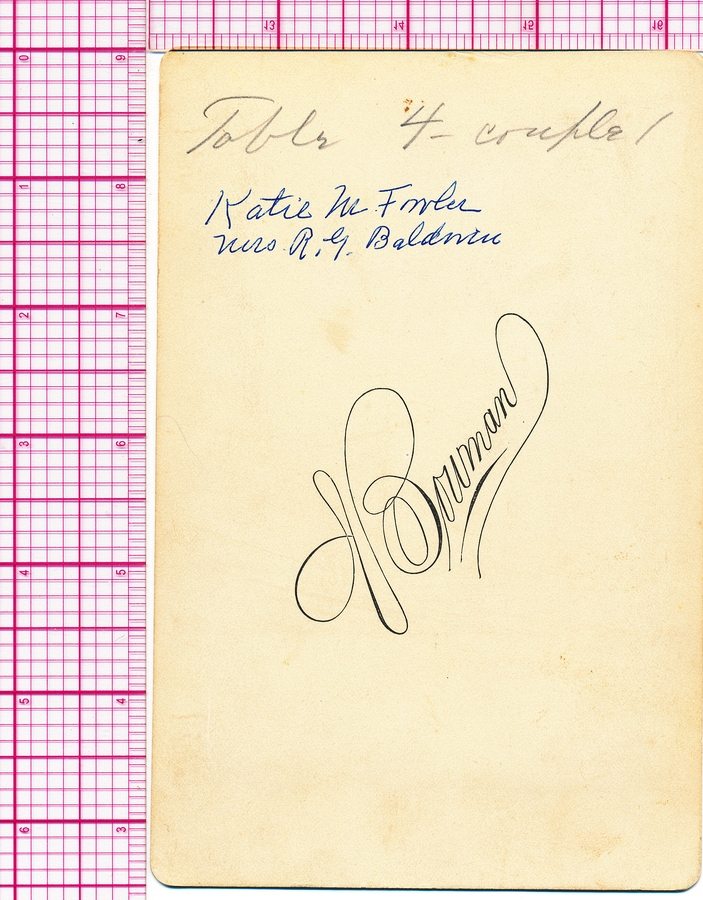 13 14 15 16
0 9
1 8
2 7
3 6
4 5
5 4
6 3
Table 4 - couple 1
Katie M Fowler
Mrs R. G. Baldwin
Bowman